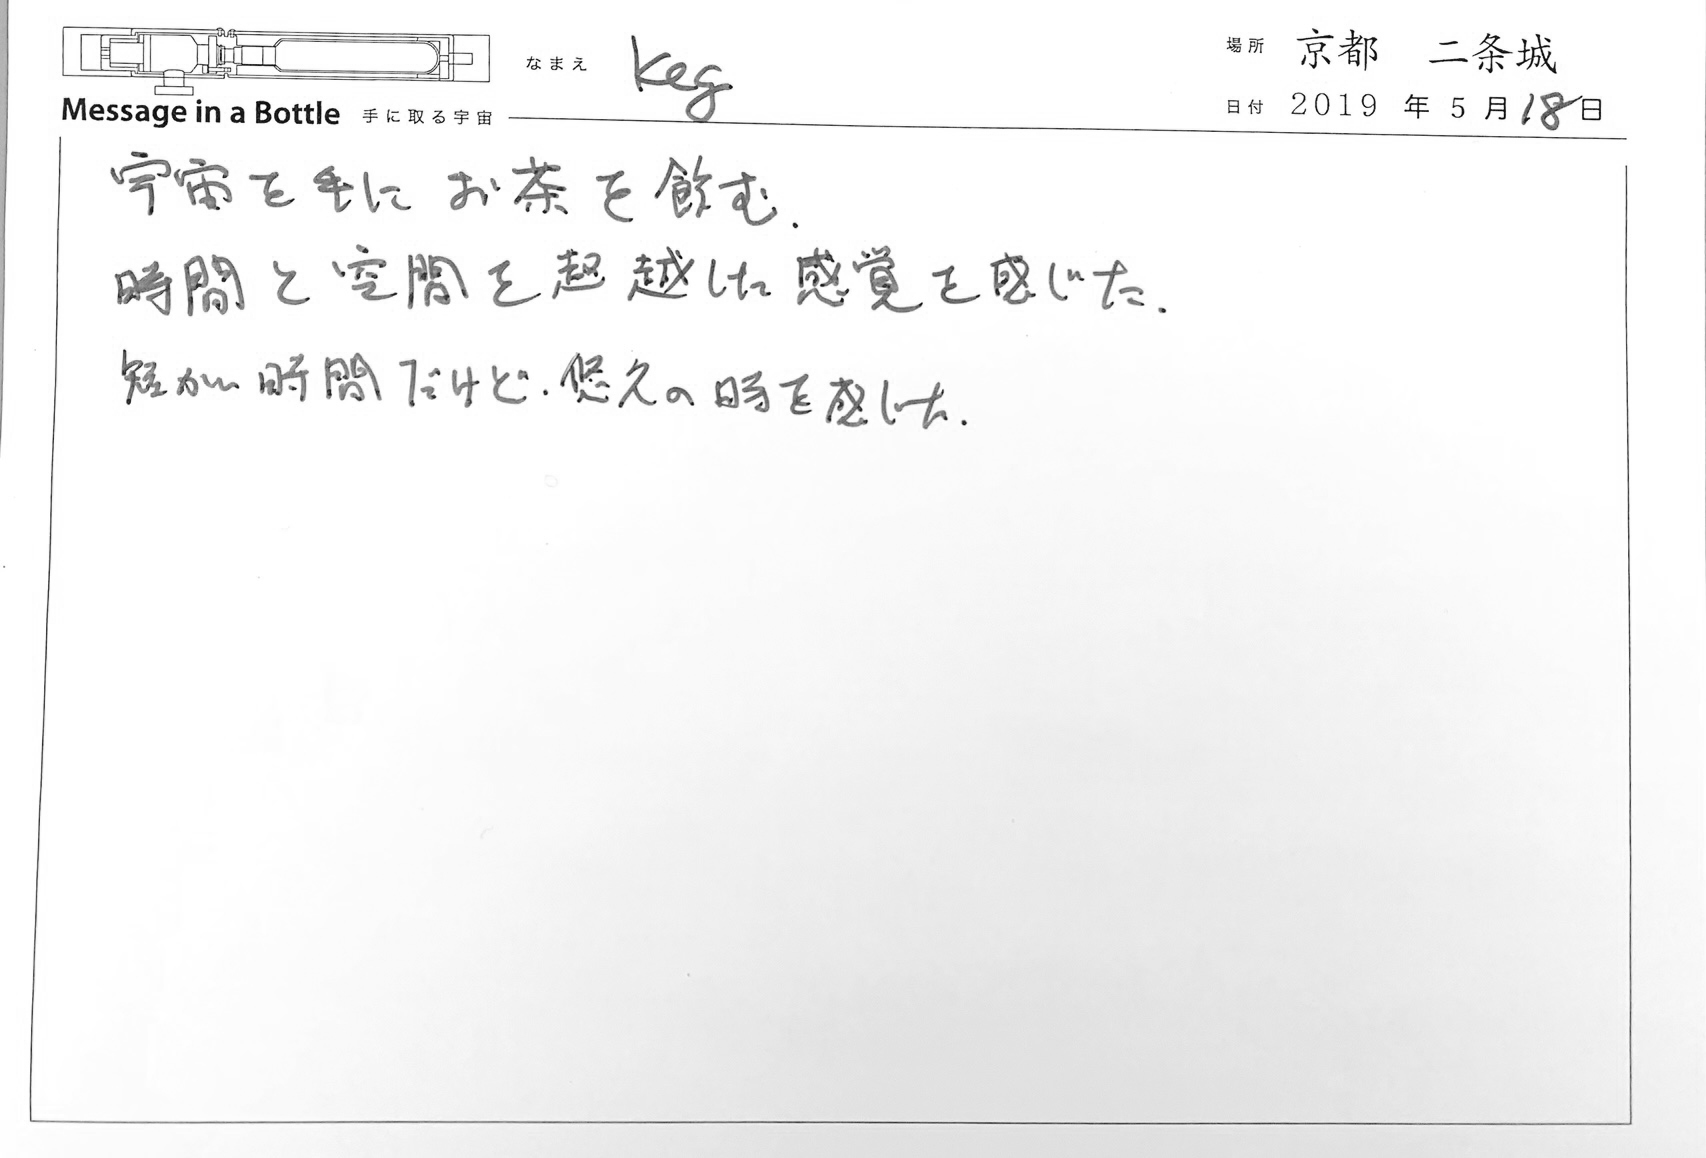 なまえ Keg
場所 京都 二条城
Message in a Bottle 手に取る宇宙
日付 2019 年 5 月 18 日
宇宙を手に お茶を飲む.
時間と空間を超越した感覚を感じた.
短かい時間だけど.悠久の時を感じた.